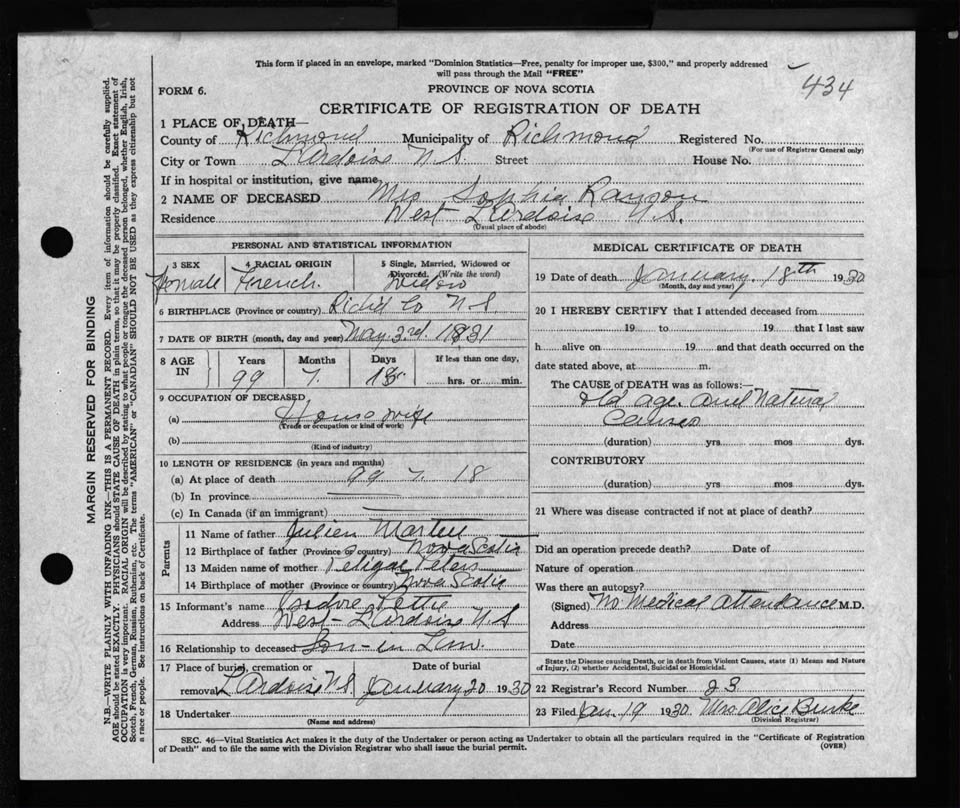 This form if placed in an envelope, marked "Dominion Statistics—Free, penalty for improper use, $300," and properly addressed
will pass through the Mail "FREE"
434
FORM 6.
PROVINCE OF NOVA SCOTIA
CERTIFICATE OF REGISTRATION OF DEATH
1 PLACE OF DEATH—
County of Richmond Municipality of Richmond Registered No.
(For use of Registrar General only)
City or Town L'Ardoise N.S. Street House No.
If in hospital or institution, give name
2 NAME OF DECEASED Mrs Sophia
Residence West L'Ardoise N.S.
(Usual place of abode)
PERSONAL AND STATISTICAL INFORMATION
3 SEX 4 RACIAL ORIGIN 5 Single, Married, Widowed or Divorced. (Write the word)
Female French. Widow
6 BIRTHPLACE (Province or country) Rich'd Co N.S
7 DATE OF BIRTH (month, day and year) 3rd 1831
8 AGE IN Years Months Days If less than one day,
99 7. 18 hrs. or min.
9 OCCUPATION OF DECEASED
(a) House wife
(Trade or occupation or kind of work)
(b)
(Kind of industry)
10 LENGTH OF RESIDENCE (in years and months)
(a) At place of death 99 7. 18
(b) In province
(c) In Canada (if an immigrant)
Parents
11 Name of father Julien
12 Birthplace of father (Province or country) Nova Scotia
13 Maiden name of mother Peters
14 Birthplace of mother (Province or country) Nova Scotia
15 Informant's name Isidore
Address West L'Ardoise N.S
16 Relationship to deceased Son-in Law.
17 Place of burial, cremation or Date of burial
removal L'Ardoise N.S. January 20 1930
18 Undertaker
(Name and address)
MEDICAL CERTIFICATE OF DEATH
19 Date of death January. 18th 1930
(Month, day and year)
20 I HEREBY CERTIFY that I attended deceased from
19 to 19 that I last saw
h alive on 19 and that death occurred on the
date stated above, at m.
The CAUSE of DEATH was as follows:—
old age. and Natural
Causes
(duration) yrs mos dys.
CONTRIBUTORY
(duration) yrs mos dys.
21 Where was disease contracted if not at place of death?
Did an operation precede death? Date of
Nature of operation
Was there an autopsy?
(Signed) No Medical attendance M.D.
Address
Date
State the Disease causing Death, or in death from Violent Causes, state (1) Means and Nature
of Injury, (2) whether Accidental, Suicidal or Homicidal.
22 Registrar's Record Number 23
23 Filed Jan. 19 1930. Mrs Alice Burke
(Division Registrar)
SEC. 46—Vital Statistics Act makes it the duty of the Undertaker or person acting as Undertaker to obtain all the particulars required in the "Certificate of Registration
of Death" and to file the same with the Division Registrar who shall issue the burial permit.
(OVER)
MARGIN RESERVED FOR BINDING
N.B.—WRITE PLAINLY WITH UNFADING INK—THIS IS A PERMANENT RECORD. Every item of information should be carefully supplied.
AGE should be stated EXACTLY. PHYSICIANS should STATE CAUSE OF DEATH in plain terms, so that it may be properly classified. Exact statement of
OCCUPATION is very important. RACIAL ORIGIN will be described by stating to what people or tongue the deceased person belonged, whether English, Irish,
Scotch, French, German, Russian, Ruthenian, etc. The terms "AMERICAN" or "CANADIAN" SHOULD NOT BE USED as they express citizenship but not
a race or people. See instructions on back of Certificate.